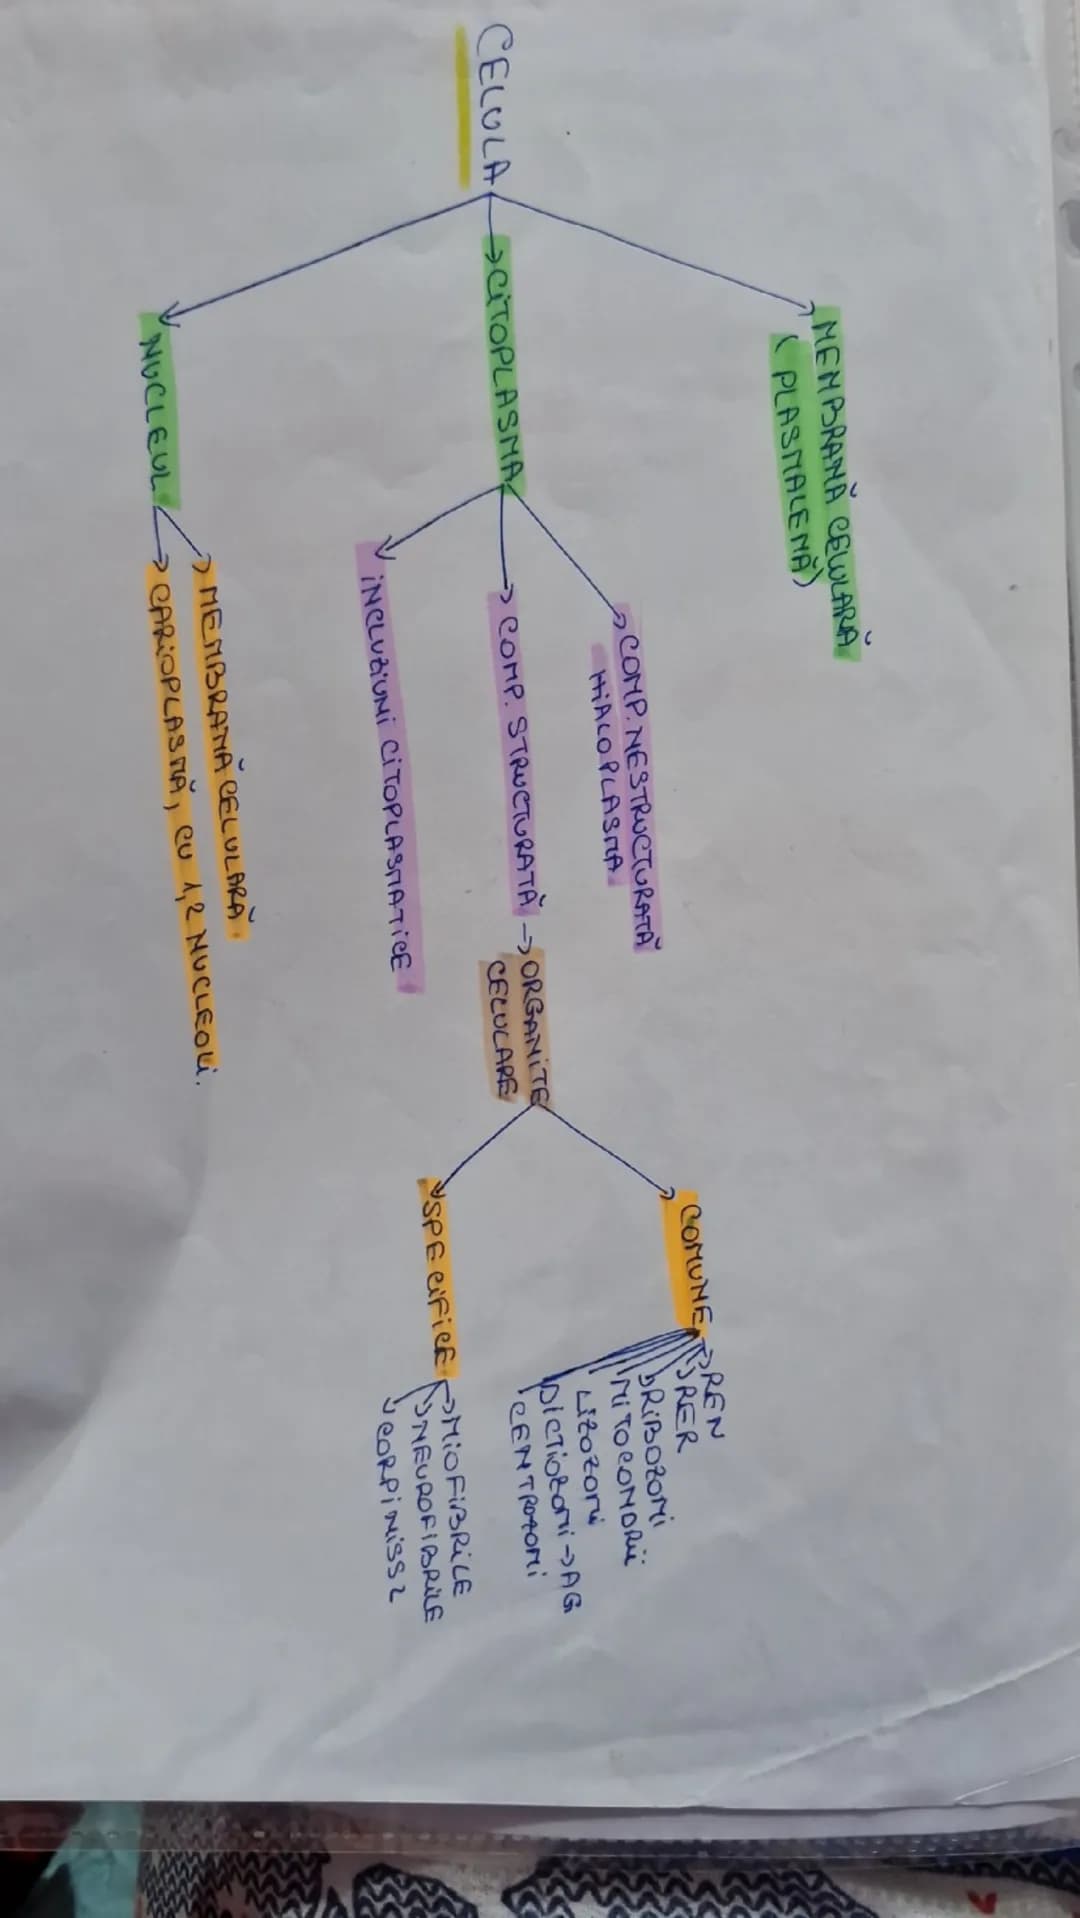 CELULA
MEMBRANĂ CELULARĂ
(PLASMALEMĂ)
CITOPLASMA
COMP. NESTRUCTURATĂ
HIALOPLASMA
COMP. STRUCTURATĂ → ORGANITE
CELULARE
COMUNE
REN
RER
RIBOZOMI
MITOCONDRII
LIZOZOMI
DICTIOZOMI → AG
CENTROZOMI
SPECIFICE
MIOFIBRILE
NEUROFIBRILE
CORPI NISSL
INCLUZIUNI CITOPLASMATICE
NUCLEUL
MEMBRANĂ CELULARĂ
CARIOPLASMĂ, CU 1,2 NUCLEOLI.